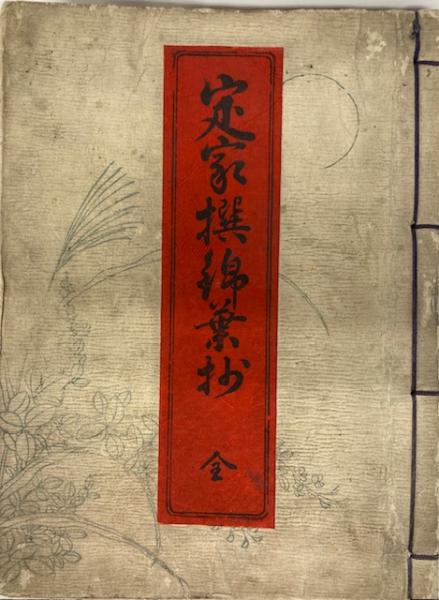 定家撰錦葉抄 全